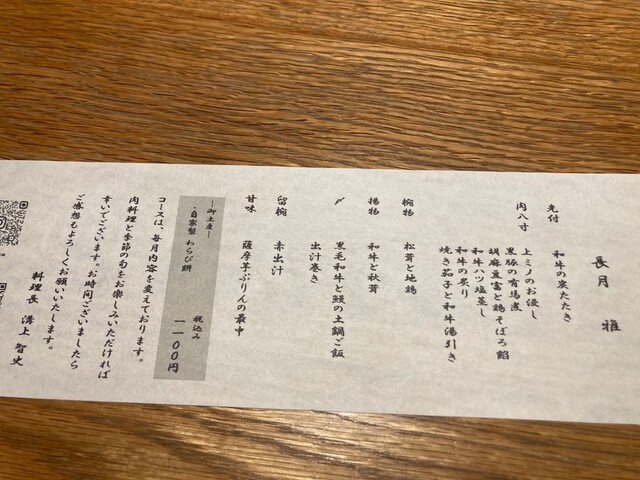 長月 雅
先付 和牛の炭たたき
肉八寸 上ミノのお浸し
黒豚の有馬煮
胡麻豆富と鶏そぼろ餡
和牛ハツ塩蒸し
和牛の炙り
焼き茄子と和牛湯引き
椀物 松茸と地鶏
揚物 和牛と秋茸
〆 黒毛和牛と鰻の土鍋ご飯
出汁巻き
留椀 赤出汁
甘味 薩摩芋ぷりんの最中
―御土産―
・自家製 わらび餅 税込み 一一00円
コースは、毎月内容を変えております。
肉料理と季節の旬をお楽しみいただければ
幸いでございます。お時間ございましたら
ご感想もよろしくお願いいたします。
料理長 溝上 智史